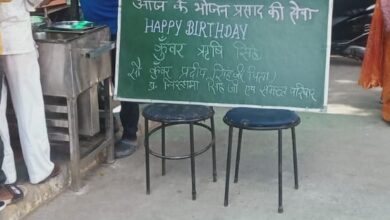 आज के भोजन प्रसाद की सेवा
HAPPY BIRTHDAY
कुँवर ऋषि सिंह
कुँवर प्रदीप सिंह जी (पिता)
सिंह जी एवं समस्त परिवार